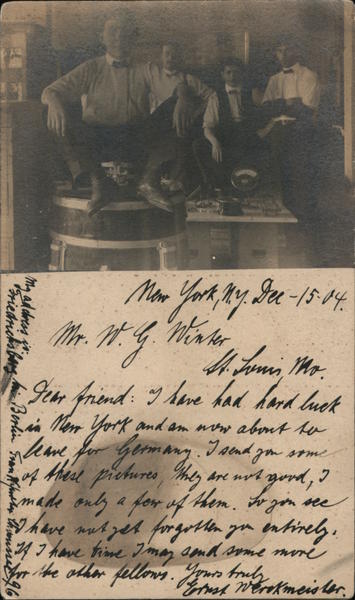 New York, N.Y. Dec - 15 - 04.
Mr. W. G. Winter
St. Louis, Mo.
Dear friend: I have had hard luck
in New York and am now about to
leave for Germany. I send you some
of these pictures, they are not good, I
made only a few of them. So you see
I have not yet forgotten you entirely.
If I have time I may send some more
for the other fellows. Yours truly
Ernst Werckmeister.
My address is
Friedrichsberg bei Berlin Frankfurter Chaussee 5/6